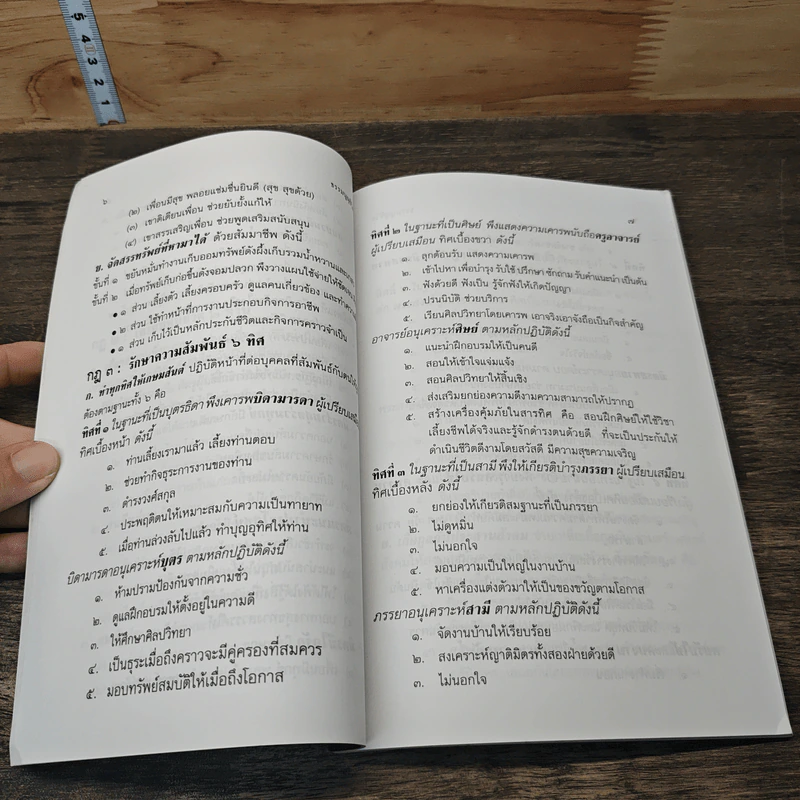 5
4
3
2
1
๖
(๒) เพื่อนมีสุข พลอยแช่มชื่นยินดี (สุข สุขด้วย)
(๓) เขาติเตียนเพื่อน ช่วยยับยั้งแก้ให้
(๔) เขาสรรเสริญเพื่อน ช่วยพูดเสริมสนับสนุน
ข. จัดสรรทรัพย์ที่หามาได้ ด้วยสัมมาชีพ ดังนี้
ขั้นที่ ๑ ขยันหมั่นทำงานเก็บออมทรัพย์ดังผึ้งเก็บรวมน้ำหวานและเกสร
ขั้นที่ ๒ เมื่อทรัพย์เก็บก่อขึ้นดังจอมปลวก พึงวางแผนใช้จ่าย
• ๑ ส่วน เลี้ยงตัว เลี้ยงครอบครัว ดูแลคนเกี่ยวข้อง และทำความ
• ๒ ส่วน ใช้ทำหน้าที่การงานประกอบกิจการอาชีพ
• ๑ ส่วน เก็บไว้เป็นหลักประกันชีวิตและกิจการคราวจำเป็น
กฎ ๓ : รักษาความสัมพันธ์ ๖ ทิศ
ก. ทำทุกทิศให้เกษมสันต์ ปฏิบัติหน้าที่ต่อบุคคลที่สัมพันธ์กับตนให้
ต้องตามฐานะทั้ง ๖ คือ
ทิศที่ ๑ ในฐานะที่เป็นบุตรธิดา พึงเคารพบิดามารดา ผู้เปรียบเสมือน
ทิศเบื้องหน้า ดังนี้
๑. ท่านเลี้ยงเรามาแล้ว เลี้ยงท่านตอบ
๒. ช่วยทำกิจธุระการงานของท่าน
๓. ดำรงวงศ์สกุล
๔. ประพฤติตนให้เหมาะสมกับความเป็นทายาท
๕. เมื่อท่านล่วงลับไปแล้ว ทำบุญอุทิศให้ท่าน
บิดามารดาอนุเคราะห์บุตร ตามหลักปฏิบัติดังนี้
๑. ห้ามปรามป้องกันจากความชั่ว
๒. ดูแลฝึกอบรมให้ตั้งอยู่ในความดี
๓. ให้ศึกษาศิลปวิทยา
๔. เป็นธุระเมื่อถึงคราวจะมีคู่ครองที่สมควร
๕. มอบทรัพย์สมบัติให้เมื่อถึงโอกาส
๗
ทิศที่ ๒ ในฐานะที่เป็นศิษย์ พึงแสดงความเคารพนับถือครูอาจารย์
ผู้เปรียบเสมือน ทิศเบื้องขวา ดังนี้
๑. ลุกต้อนรับ แสดงความเคารพ
๒. เข้าไปหา เพื่อบำรุง รับใช้ ปรึกษา ซักถาม รับคำแนะนำ เป็นต้น
๓. ฟังด้วยดี ฟังเป็น รู้จักฟังให้เกิดปัญญา
๔. ปรนนิบัติ ช่วยบริการ
๕. เรียนศิลปวิทยาโดยเคารพ เอาจริงเอาจังถือเป็นกิจสำคัญ
อาจารย์อนุเคราะห์ศิษย์ ตามหลักปฏิบัติดังนี้
๑. แนะนำฝึกอบรมให้เป็นคนดี
๒. สอนให้เข้าใจแจ่มแจ้ง
๓. สอนศิลปวิทยาให้สิ้นเชิง
๔. ส่งเสริมยกย่องความดีงามความสามารถให้ปรากฏ
๕. สร้างเครื่องคุ้มภัยในสารทิศ คือ สอนฝึกศิษย์ให้ใช้วิชา
เลี้ยงชีพได้จริงและรู้จักดำรงตนด้วยดี ที่จะเป็นประกันให้
ดำเนินชีวิตดีงามโดยสวัสดี มีความสุขความเจริญ
ทิศที่ ๓ ในฐานะที่เป็นสามี พึงให้เกียรติบำรุงภรรยา ผู้เปรียบเสมือน
ทิศเบื้องหลัง ดังนี้
๑. ยกย่องให้เกียรติสมฐานะที่เป็นภรรยา
๒. ไม่ดูหมิ่น
๓. ไม่นอกใจ
๔. มอบความเป็นใหญ่ในงานบ้าน
๕. หาเครื่องแต่งตัวมาให้เป็นของขวัญตามโอกาส
ภรรยาอนุเคราะห์สามี ตามหลักปฏิบัติดังนี้
๑. จัดงานบ้านให้เรียบร้อย
๒. สงเคราะห์ญาติมิตรทั้งสองฝ่ายด้วยดี
๓. ไม่นอกใจ